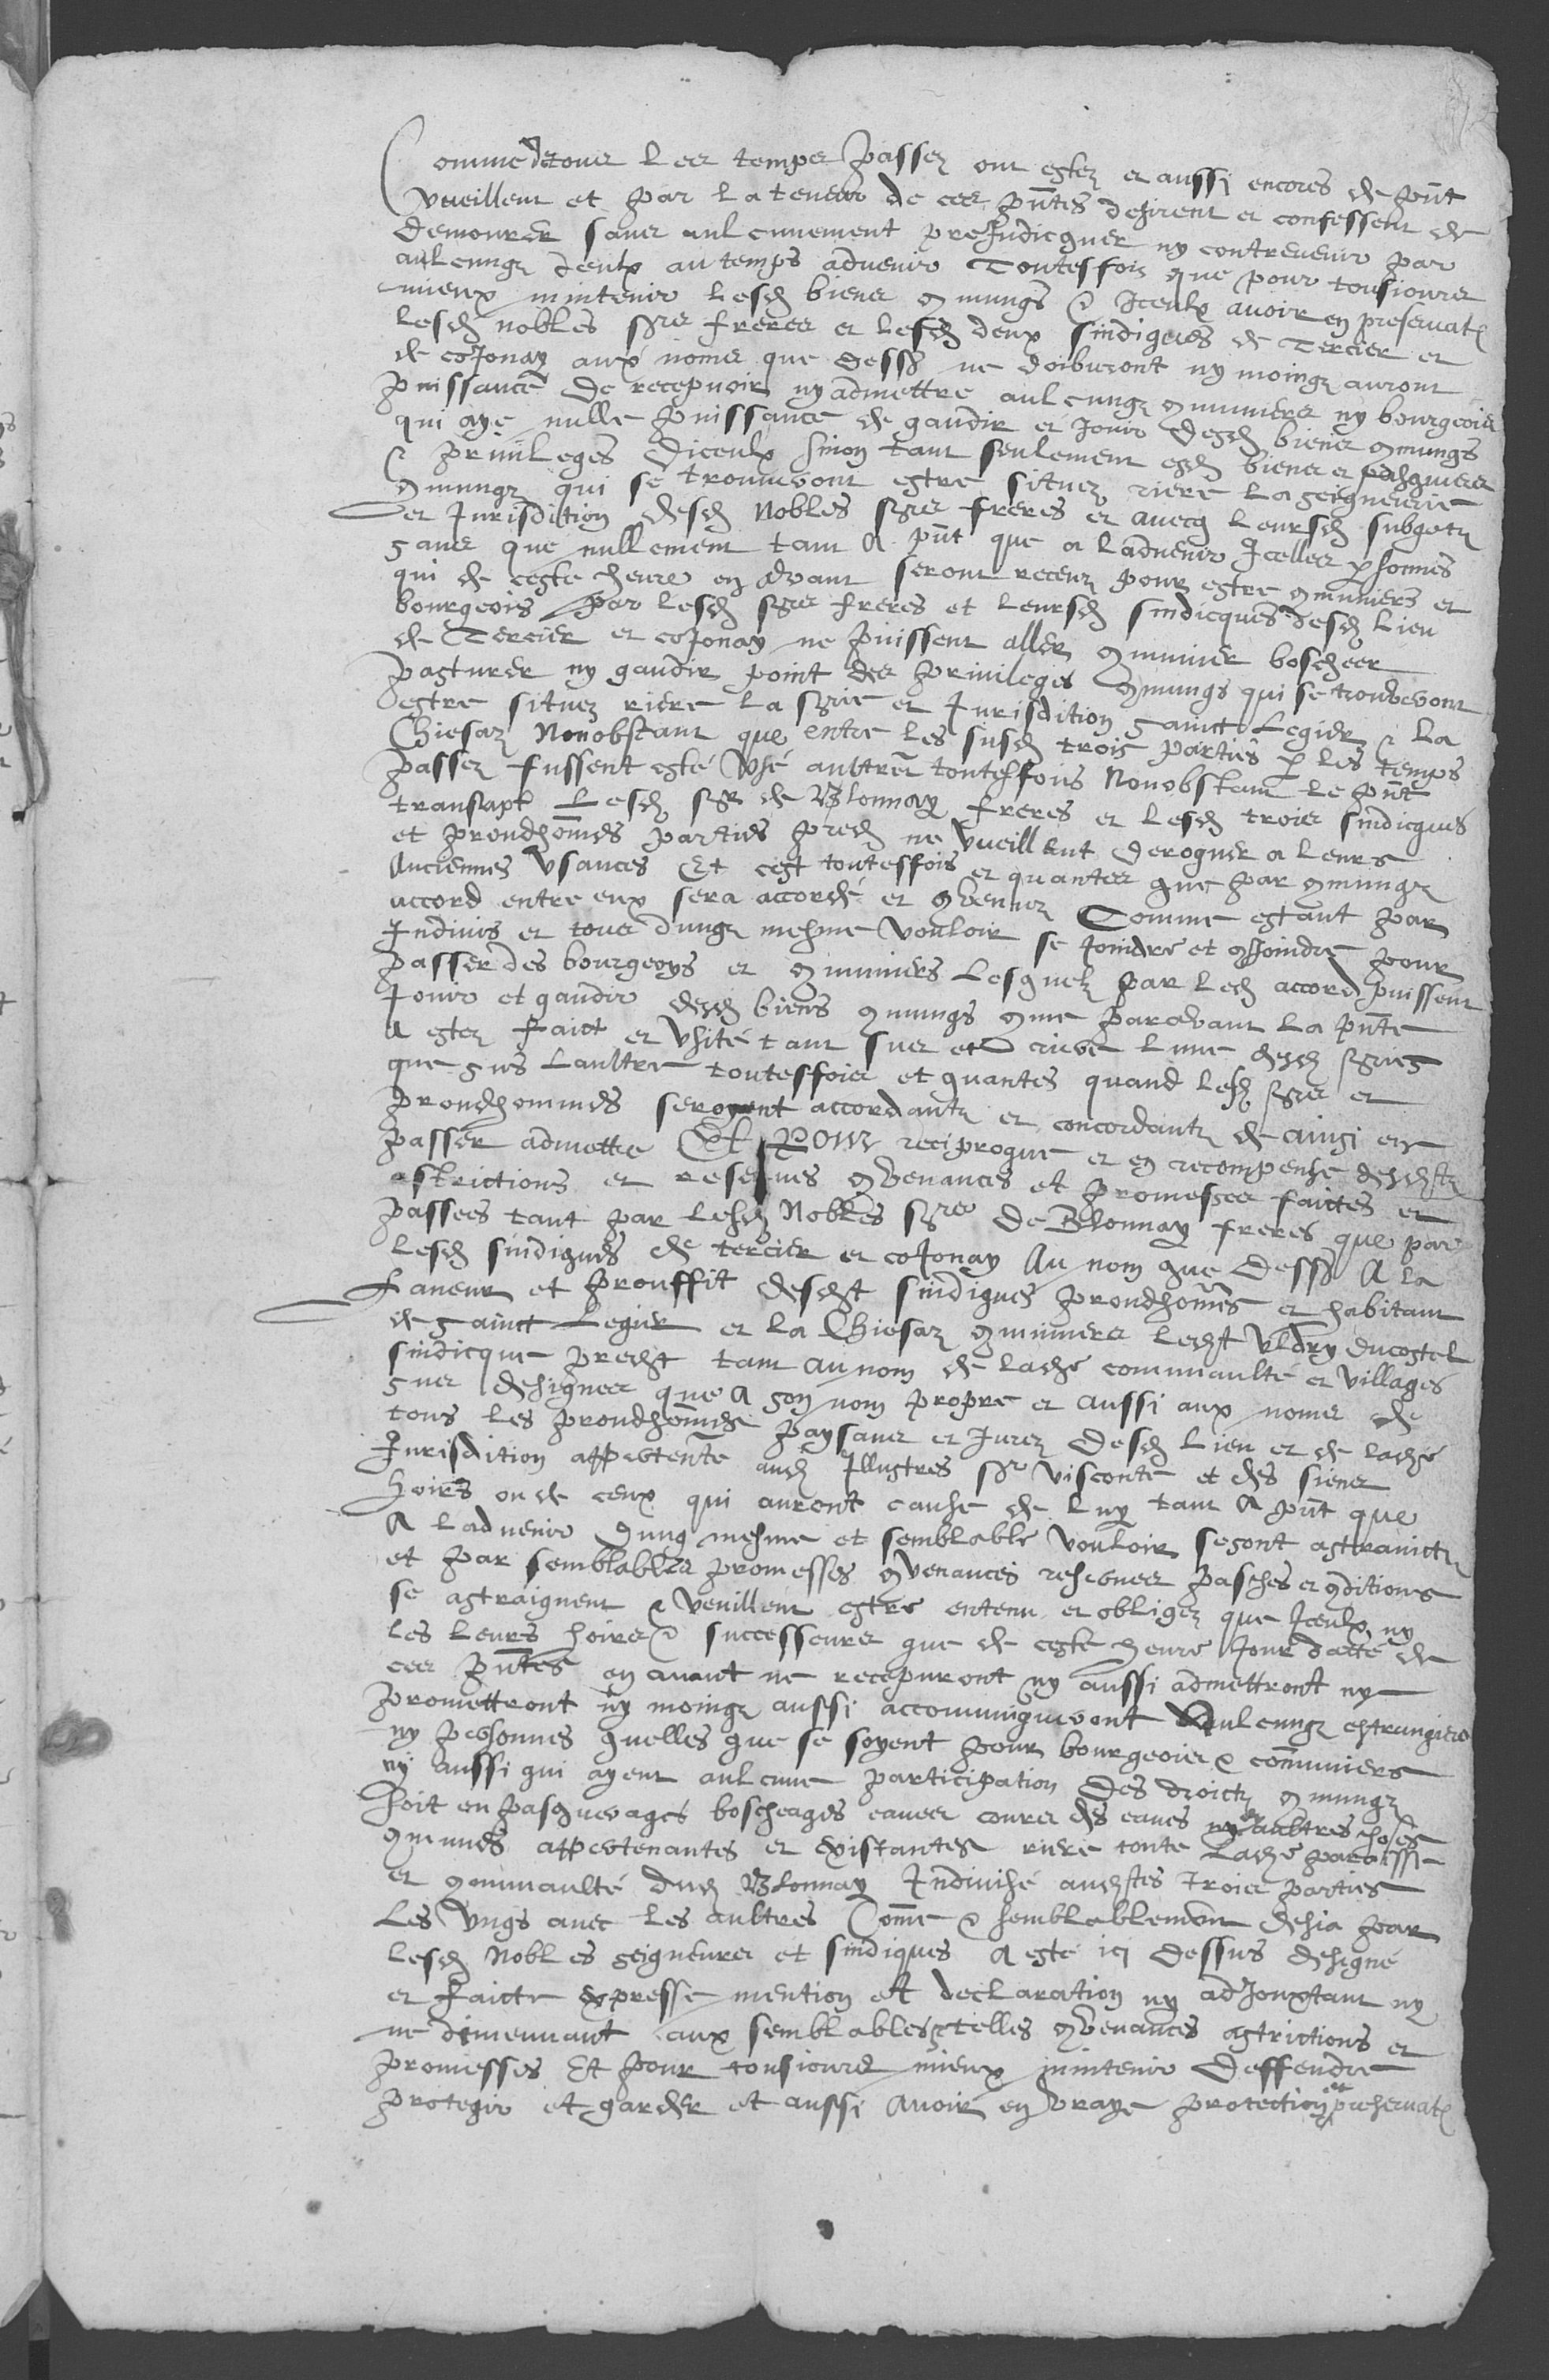 Comme de tous les temps passez ont estez et aussi encores de pñt
vueillent et par la teneur de ces pñtes desirent et confessent de
demourer sans aulcunement preJudicquer ny contrevenir par
aulcungz deulx au temps advenir Touteffois que pour tousiours
mieux mintenir lesd biens gmungs & Jceulx avoir en preservatz
lesd nobles sgrs freres et lesd deux sindiques de Tercier et
de coJonay aux noms que dessus ne doibvront ny moingz auront
puissance de recepvoir ny admettre aulcungz gmuniers ny bourgeois
qui aye nulle puissance de gaudir et Jouir desd biens gmungs
& privileges diceulx sinon tant seulement esd biens et
gmungz qui se trouveront estre situez riere la seigneurie
et Jurisdition desd Nobles sgrs freres et avecq leursd subgetz
sans que nullement tant a pñt que a ladvenir Jcelles psonnes
qui de ceste heure en avant seront receuz pour estre gmuniers et
bourgeois par lesd sgrs freres et leursd sindicques desd lieu
de Tercier et coJonay ne puissent aller gmuniner boscheer
pasturer ny gaudir point des privileges gmungs qui se trouveront
estre situez riere la sgrie et Jurisdition sainct Legier & La
Chiesaz Nonobstant que entre les susd trois parties p les temps
passez fussent esté usé aultremt touteffois Nonobstant le pñt
transapt Lesd sgrs de Blonnay freres et lesd trois sindicques
et proudhom̃es parties pred ne vueillent deroguer a leurs
anciennes usances Et cest touteffois et quantes que par gmungz
accord entre eux sera accordé et gvenuz Comme estant par
Jndivis et tous dungz mesme vouloir se Joindre et gJoindre pour
passer des bourgeoys et gmuniers lesquelz par led accord puissent
Jouir et gaudir desd biens gmungs gme paravant la pñte
a estez faict et usité tant sus et riere lune desd sgries
que sus laultre touteffois et quantes quand lesd sgrs et
proudhommes seroyent accordantz et concordantz de ainsi en
passer admettre Et Pour reciproque et en recompense desdstz
astrictions et reserves gvenances et promesses faictes et
passees tant par lesd Nobles sgrs de Blonnay freres que par
lesd sindiques de tercier et coJonay Au nom que dessus A la
faveur et prouffit desdst sindiques proudhom̃es et habitant
de sainct Legier et la Chiesaz gmuniers ledst Uldry ducostel
sindicque predst tant au nom de lade communaulté et villages
sus designees que a son nom propre et aussi aux noms de
tous les proudhom̃es paysans et Jurez desd lieu et de lade
Jurisdition appertenẽte aud Jllustres sgr visconte et des siens
hoirs ou de ceux qui auront cause de luy tant a pñt que
a ladvenir dung mesme et semblable vouloir se sont astrainctz
et par semblables promesses gvenances reserves pasches et gditions
se astraignent & veuillent estre entenu et obligez que Jceulx ny
les leurs hoirs & successeurs que de ceste heure Jour datte de
ces pñtes en avant ne recepvront ny aussi admettront ny
promettront ny moingz aussi accommuniqueront aulcungz estrangiers
ny personnes quelles que se soyent pour bourgeois & com̃uniers
ny aussi qui ayent aulcune participation des droictz gmungz
soit en pasquerages boscheages eaues cours des eaues ny aultres choses
gmunes appertenantes et existantes riere toute lade paroisse
et gmunaulté dud Blonnay Jndivisé audstes trois parties
Les ungs avec les aultres Com̃e & semblablement desia par
lesd Nobles seigneurs et sindiques a esté ici dessus designé
et faicte expresse mention et declaration ny adJouxtant ny
ne dimenuant aux semblables & telles gvenances astrictions et
promesses Et pour tousiours mieux mintenir deffendre
protegir et garder et aussi avoir en vraye protection et preservatz